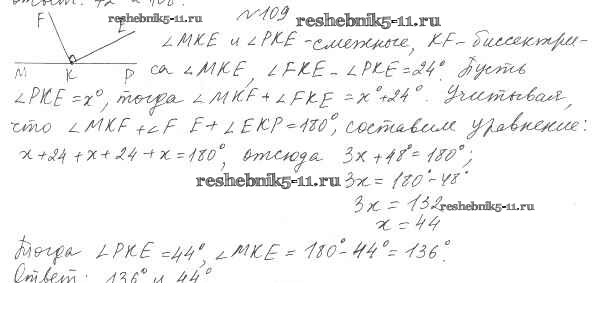 ответ: 72° и 108°.
№109
reshebnik5-11.ru
reshebnik5-11.ru
F E
M K P
∠MKE и ∠PKE - смежные, KF - биссектри-
са ∠MKE, ∠FKE - ∠PKE = 24°. Пусть
∠PKE = x°, тогда ∠MKF + ∠FKE = x° + 24°. Учитывая,
что ∠MKF + ∠F E + ∠EKP = 180°, составим уравнение:
x + 24 + x + 24 + x = 180°, отсюда 3x + 48° = 180°;
reshebnik5-11.ru 3x = 180° - 48°
3x = 132 reshebnik5-11.ru
x = 44
Тогда ∠PKE = 44°, ∠MKE = 180° - 44° = 136°.
Ответ: 136° и 44°